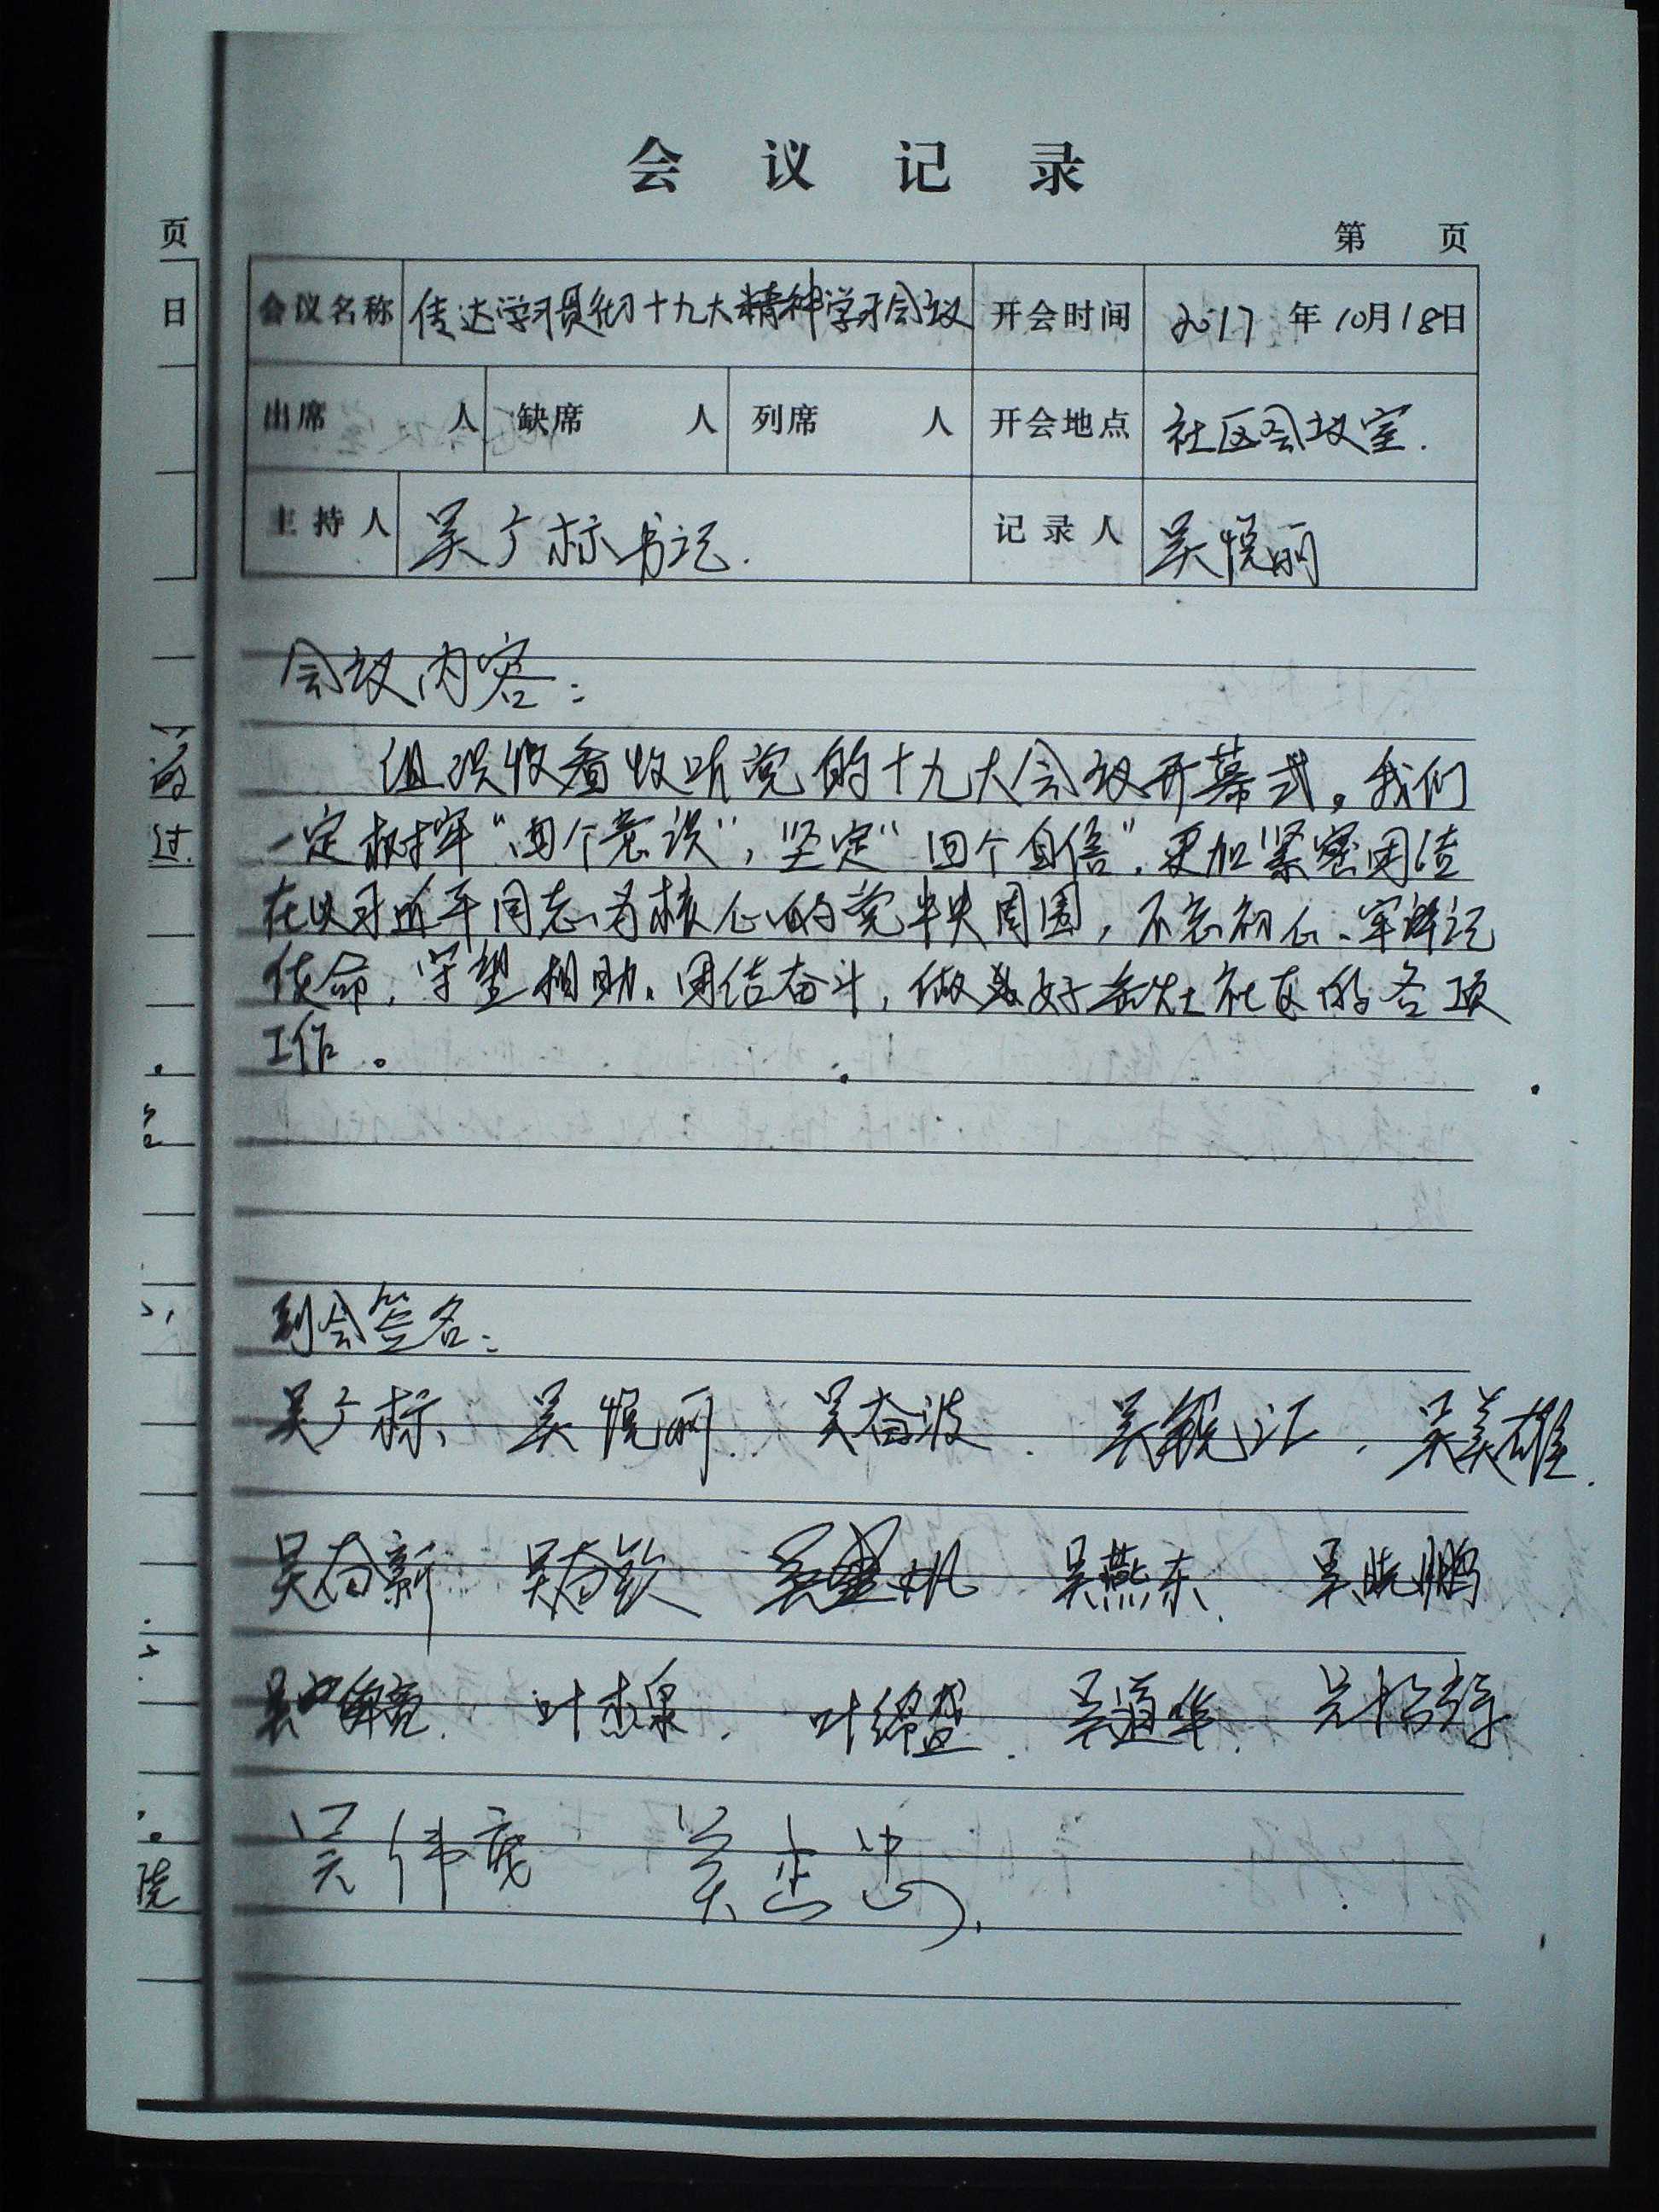 会议记录
第 页
会议名称 传达学习贯彻十九大精神学习会议 开会时间 2017年10月18日
出席 人 缺席 人 列席 人 开会地点 社区会议室.
主持人 吴广标书记. 记录人 吴悦丽
会议内容:
组织收看收听党的十九大会议开幕式。我们
一定树牢“四个意识”,坚定“四个自信”.更加紧密团结
在以习近平同志为核心的党中央周围,不忘初心、牢记
使命,守望相助。团结奋斗,做好社区的各项
工作。
到会签名:
吴广标、吴悦丽. 吴奋波. 吴锐汇. 吴美雄.
吴奋新 吴奋钦 吴燕东. 吴晓鹏
吴道华.
吴伟亮 吴
页
日
过